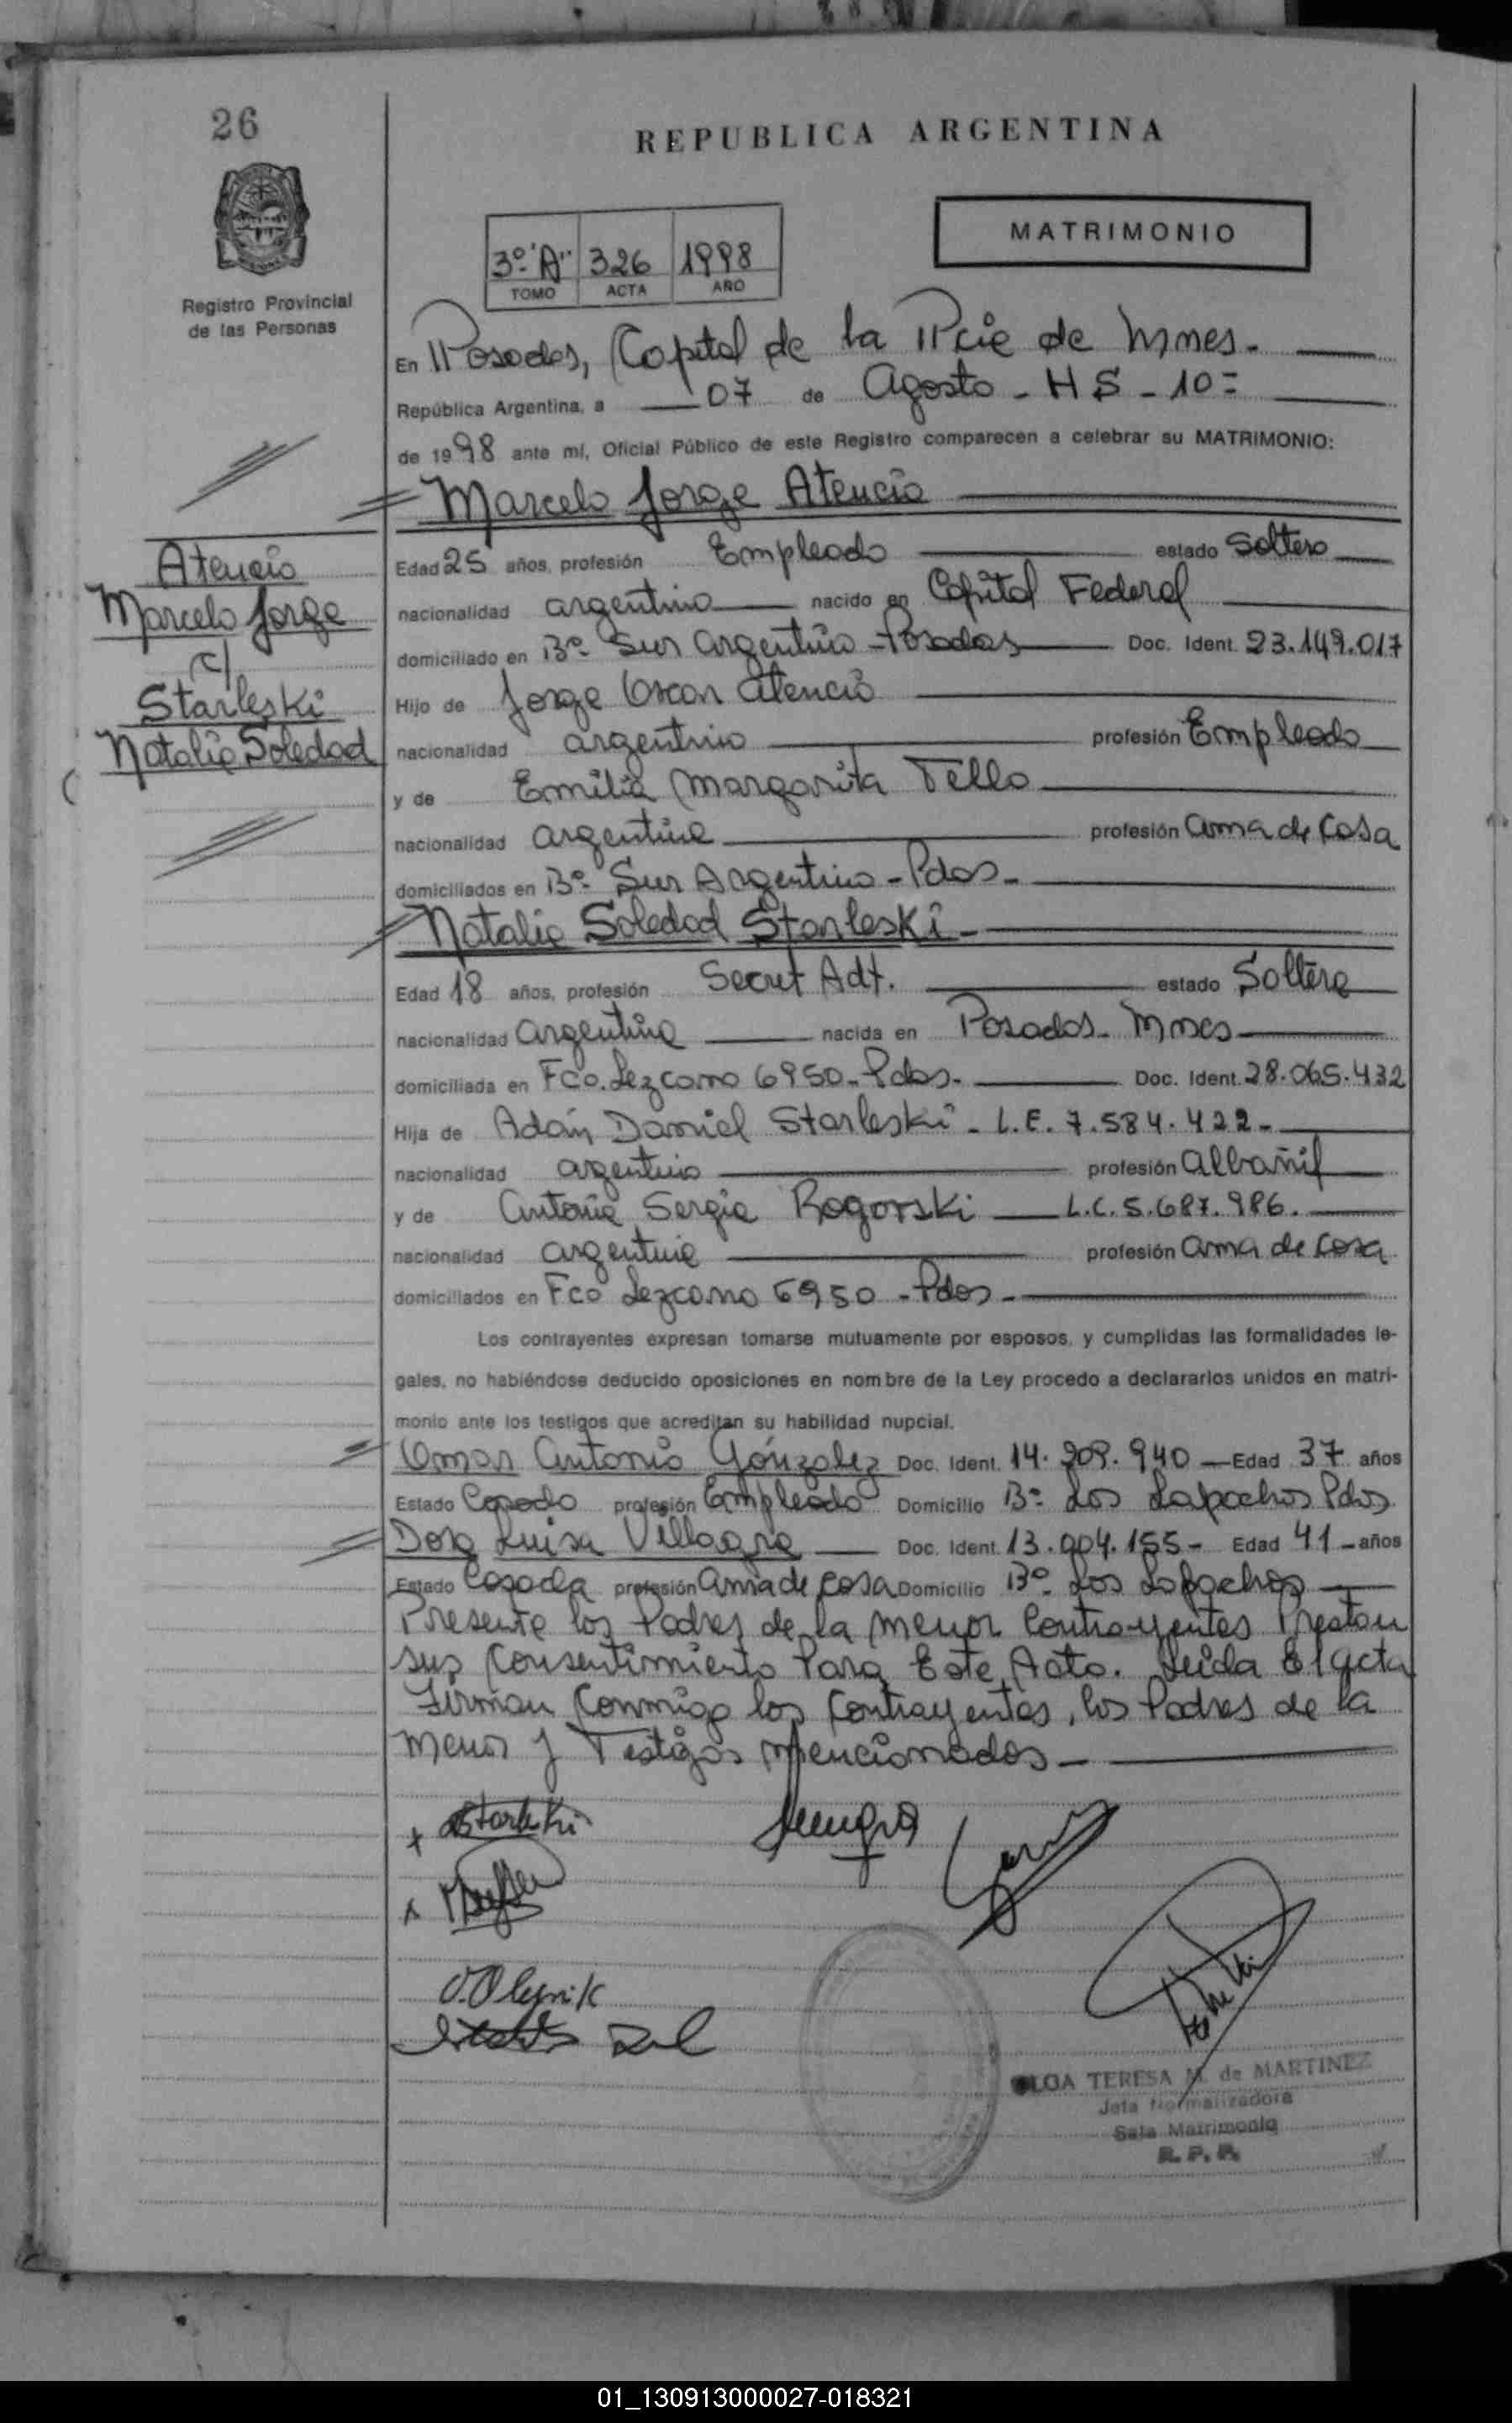 26
REPUBLICA ARGENTINA
MATRIMONIO
3º "A" 326 1998
TOMO ACTA AÑO
Registro Provincial
de las Personas
En Posadas, Capital de la Pcia de Mnes.
República Argentina, a 07 de Agosto - HS - 10=
de 1998 ante mí, Oficial Público de este Registro comparecen a celebrar su MATRIMONIO:
Marcelo Jorge Atencio
Atencio
Marcelo Jorge
c/
Starleski
Natalia Soledad
Edad 25 años, profesión Empleado estado Soltero
nacionalidad argentino nacido en Capital Federal
domiciliado en Bº Sur Argentino - Posadas Doc. Ident. 23.149.017
Hijo de Jorge Oscar Atencio
nacionalidad argentino profesión Empleado
y de Emilia Margarita Tello
nacionalidad argentina profesión ama de Casa
domiciliados en Bº Sur Argentino - Pdas -
Natalia Soledad Starleski -
Edad 18 años, profesión Secret Adt. estado Soltera
nacionalidad argentina nacida en Posadas - Mnes
domiciliada en Fco. Lezcano 6950 - Pdas. Doc. Ident. 28.065.432
Hija de Adán Daniel Starleski - L.E. 7.584.422 -
nacionalidad argentino profesión albañil
y de Antonia Sergia Rogorski L.C. 5.687.986.
nacionalidad argentina profesión ama de casa
domiciliados en Fco Lezcano 6950 - Pdas -
Los contrayentes expresan tomarse mutuamente por esposos, y cumplidas las formalidades le-
gales, no habiéndose deducido oposiciones en nombre de la Ley procedo a declararlos unidos en matri-
monio ante los testigos que acreditan su habilidad nupcial.
Omar Antonio Gónzalez Doc. Ident. 14.209.940 - Edad 37 años
Estado Casado profesión Empleado Domicilio Bº Los Lapachos Pdas
Dora Luisa Villagra Doc. Ident. 13.004.155 - Edad 41 - años
Estado Casada profesión ama de casa Domicilio Bº Los Lapachos
Presente los Padres de la menor Contrayentes Prestan
sus Consentimiento Para Este Acto. Leida El acta
Firman Conmigo los Contrayentes, los Padres de la
menor y Testigos mencionados -
Starleski
O. Olejnik
OLGA TERESA M. de MARTINEZ
Jefa Normalizadora
Sala Matrimonio
R. P. P.
01_130913000027-018321